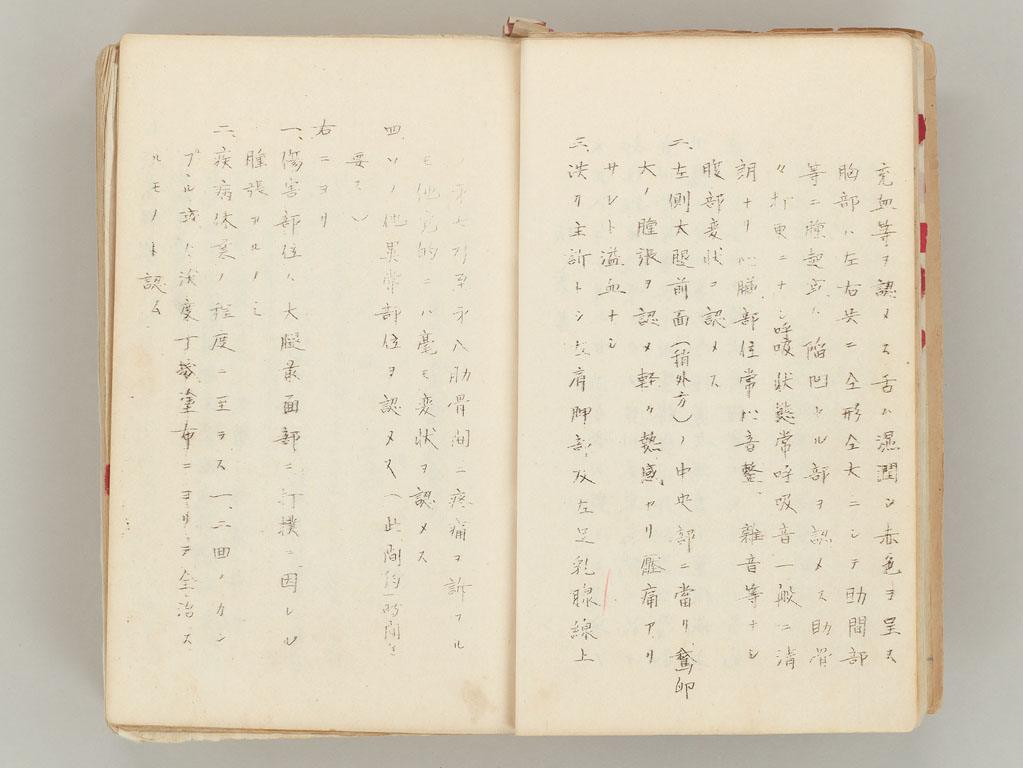 充血等ヲ認メス舌ハ湿潤シ赤色ヲ呈ス
胸部ハ左右共ニ仝形仝大ニシテ肋間部
等ニ腫起或ハ陥凹セル部ヲ認メス肋骨
ニナシ呼吸状態常呼吸音一般ニ清
朗ナリ心臓部位常心音整、雑音等ナシ
腹部変状ヲ認メス
二、左側大腿前面(稍外方)ノ中央部ニ當リ、奮卵
大ノ腫張ヲ認メ軽ク熱感アリ壓痛アリ
サレト溢血ナシ
三、次リ主訴トシ左肩胛部、及左足乳腺線上
ノ第七乃至第八肋骨間ニ疼痛ヲ訴フル
モ他覚的ニハ毫モ変状ヲ認メス
四、ソノ他異常部位ヲ認メス(此間約一時間ヲ
要ス)
右ニヨリ
一、傷害部位ハ大腿前面部ニ打撲ニ因レル
腫張アルノミ
二、疾病休業ノ程度ニ至ラス一、二回ノカン
プル或ハ沃度丁幾塗布ニヨリテ全治ス
ルモノト認ム